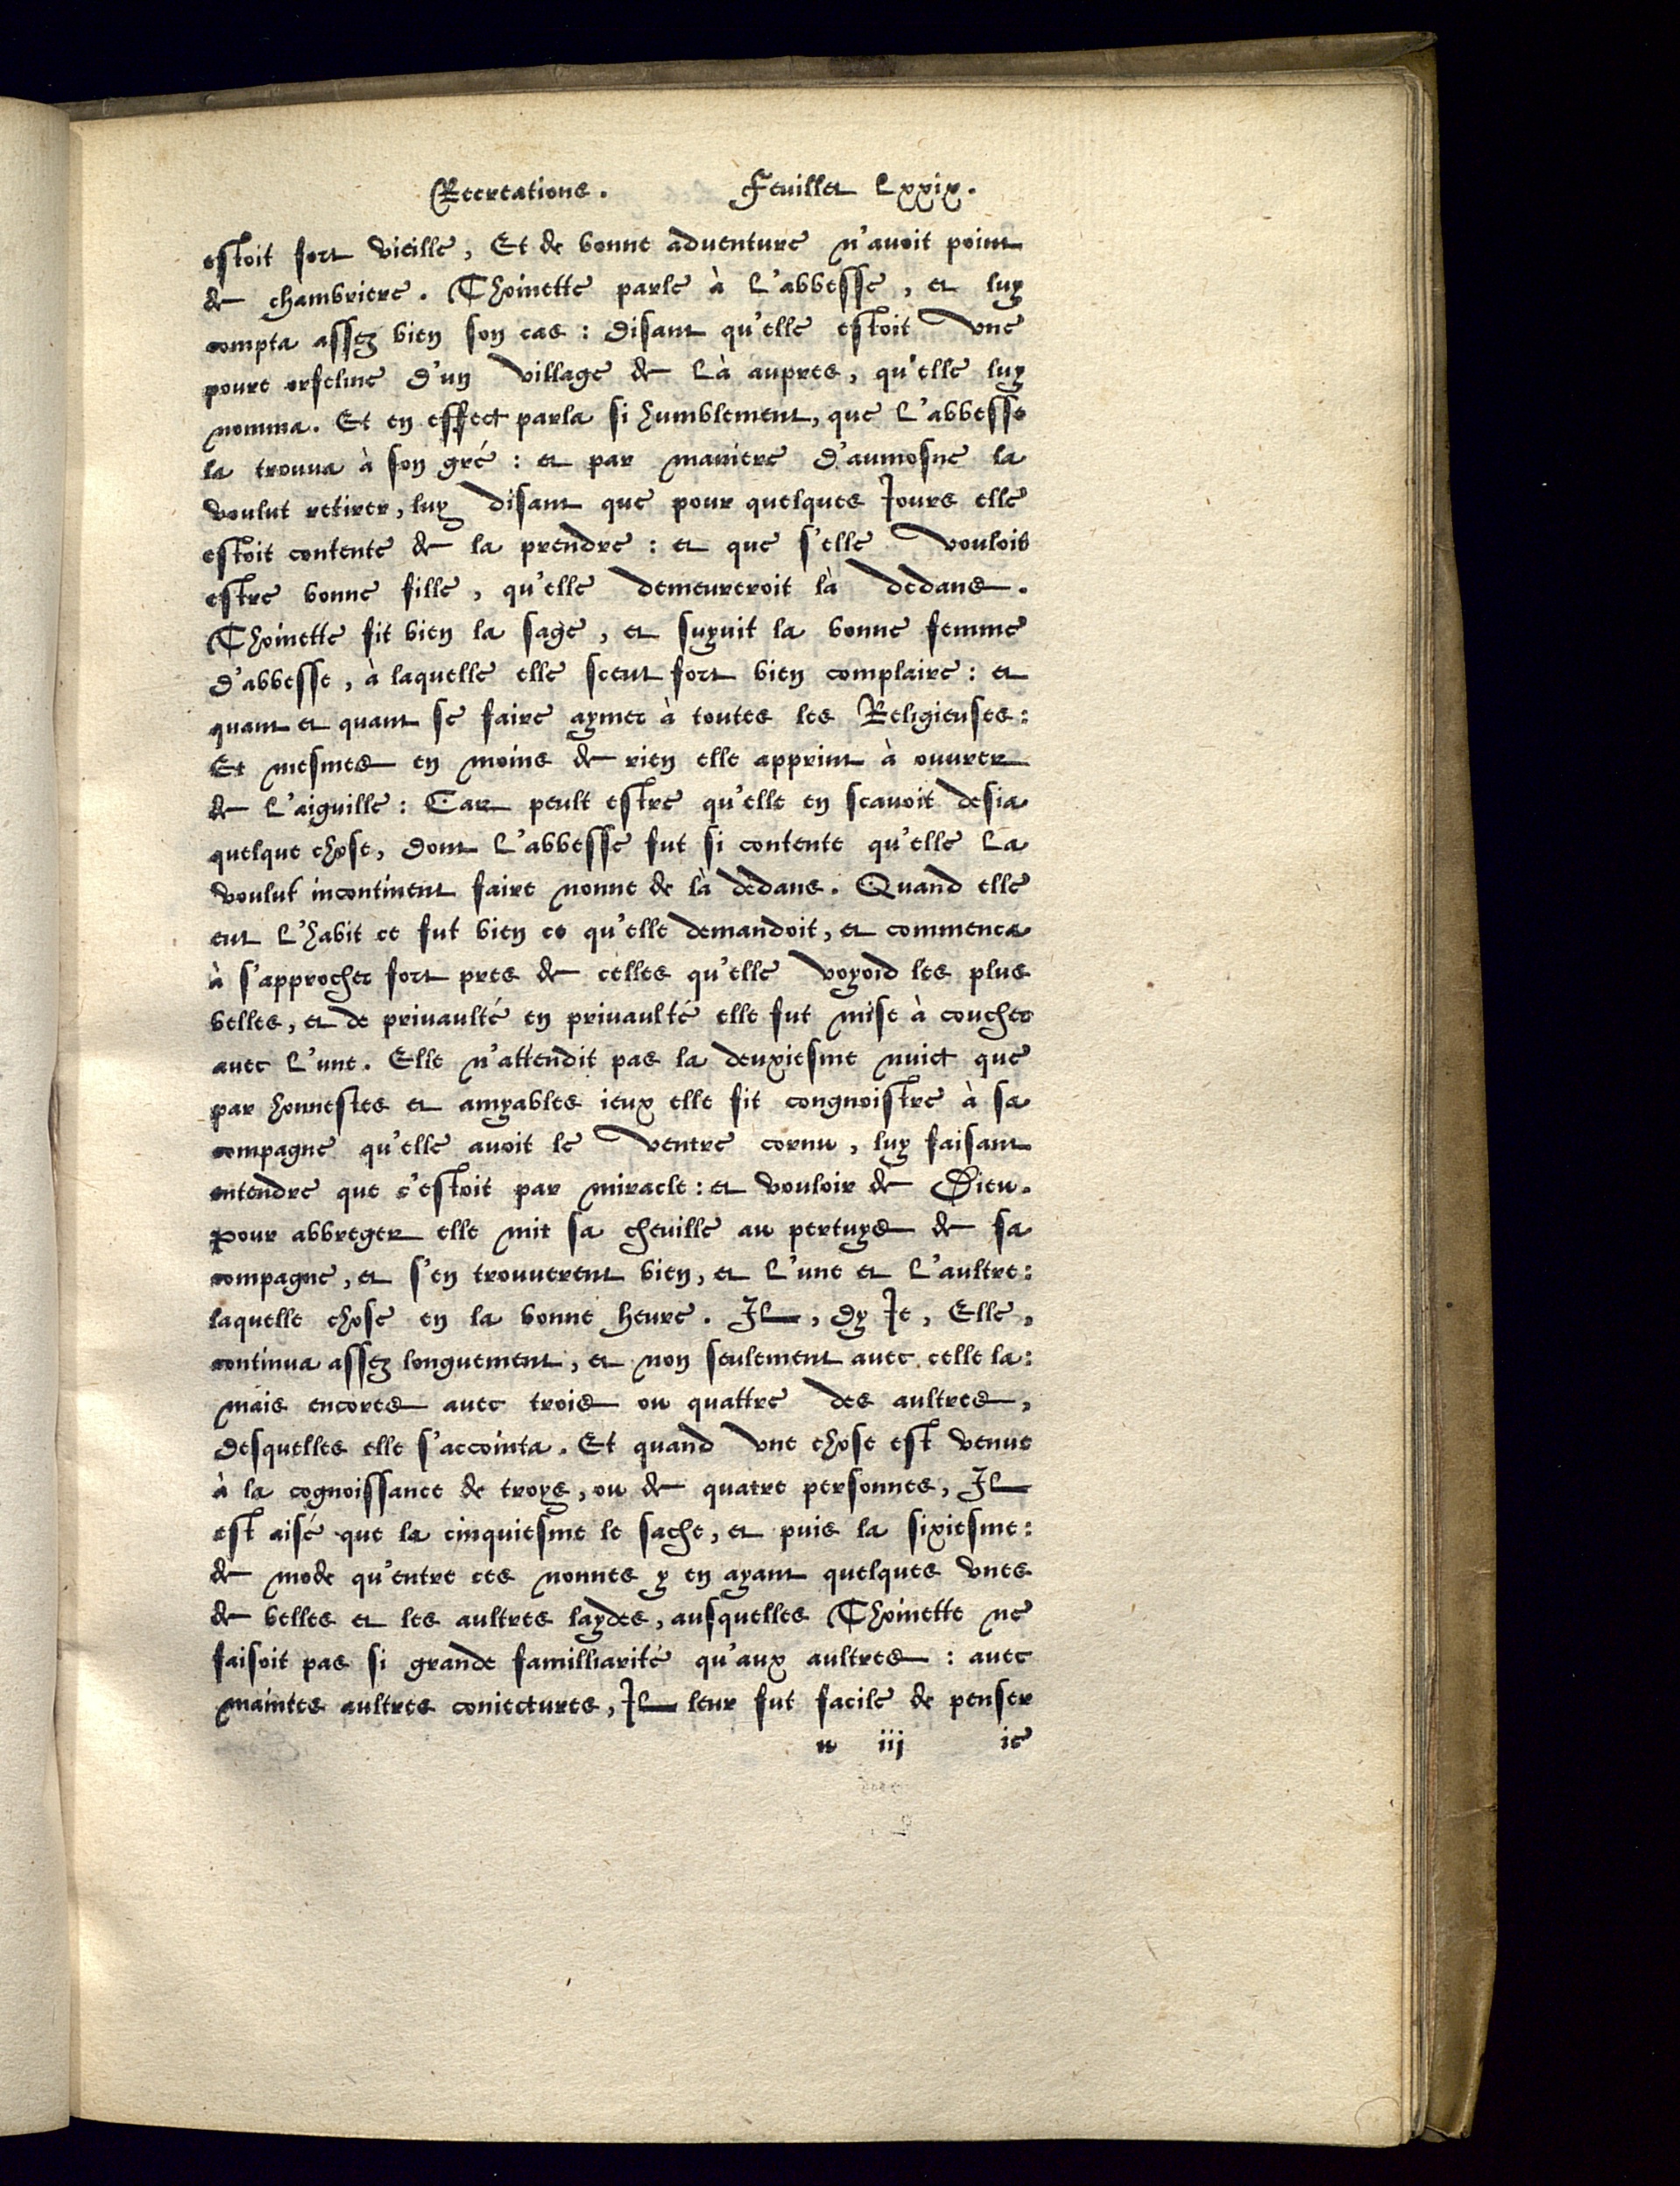 Recreations. Feuillet Lxxix.
estoit fort vieille, Et de bonne aduenture n'auoit point
de chambriere. Thoinette parle à L'abbesse, et luy
compta assez bien son cas : disant qu'elle estoit vne
poure orfeline d'un village de Là aupres, qu'elle luy
nomma. Et en effect parla si humblement, que L'abbesse
la trouua à son gré : et par maniere d'aumosne la
voulut retirer, luy disant que pour quelques Jours elle
estoit contente de la prendre : et que s'elle vouloit
estre bonne fille, qu'elle demeureroit là dedans.
Thoinette fit bien la sage, et suyuit la bonne femme
d'abbesse, à laquelle elle sceut fort bien complaire : et
quant et quant se faire aymer à toutes les Religieuses :
Et mesmes en moins de rien elle apprint à ouurer
de L'aiguille : Car peult estre qu'elle en scauoit desia
quelque chose, dont L'abbesse fut si contente qu'elle La
voulut incontinent faire nonne de là dedans. Quand elle
eut L'habit ce fut bien ce qu'elle demandoit, et commenca
à s'approcher fort pres de celles qu'elle voyoid les plus
belles, et de priuaulté en priuaulté elle fut mise à coucher
auec L'une. Elle n'attendit pas la deuxiesme nuict que
par honnestes et amyables ieux elle fit congnoistre à sa
compagne qu'elle auoit le ventre cornu, luy faisant
entendre que c'estoit par miracle : et vouloir de Dieu.
Pour abbreger elle mit sa cheuille au pertuys de sa
compagne, et s'en trouuerent bien, et L'une et L'aultre :
laquelle chose en la bonne heure. IL, dy Je, Elle,
continua assez longuement, et non seulement auec celle la :
mais encores auec trois ou quattre des aultres,
desquelles elle s'accointa. Et quand vne chose est venue
à la cognoissance de troys, ou de quatre personnes, IL
est aisé que la cinquiesme le sache, et puis la sixiesme :
de mode qu'entre ces nonnes y en ayant quelques vnes
de belles et les aultres laydes, ausquelles Thoinette ne
faisoit pas si grande familliarité qu'aux aultres : auec
maintes aultres coniectures, IL leur fut facile de penser
u iij ie